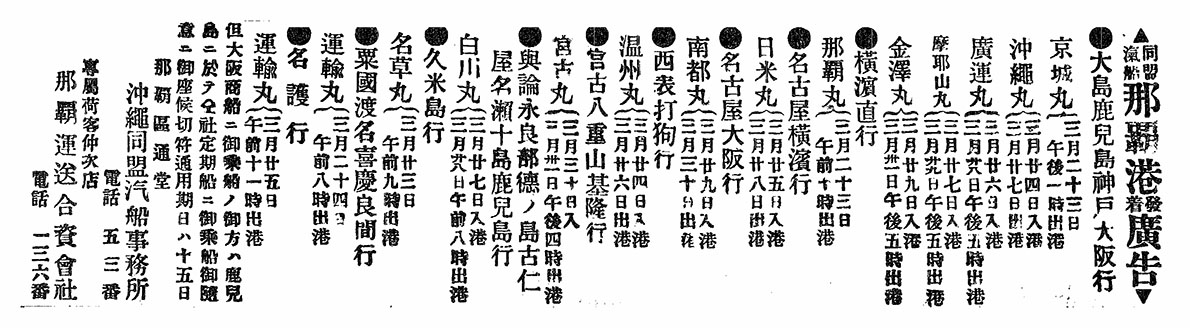 ▲同盟汽船那覇港發着廣告▼
●大島鹿兒島神戸大阪行
京城丸 三月二十三日 午後一時出港
沖繩丸 三月廿四日入港 三月廿七日出港
廣運丸 三月廿六日入港 三月廿九日午後五時出港
摩耶山丸 三月廿八日入港 三月廿九日午後五時出港
金澤丸 三月廿九日入港 三月卅一日午後五時出港
●横濱直行
那覇丸 三月二十三日 午前十時出港
●名古屋横濱行
日米丸 三月廿五日入港 三月廿八日出港
●名古屋大阪行
南都丸 三月廿九日入港 三月三十日出港
●西表打狗行
温州丸 三月廿四日入港 三月廿六日出港
●宮古八重山基隆行
宮古丸 三月三十日入港 三月卅一日午後四時出港
●與論永良部德ノ島古仁
屋名瀬十島鹿兒島行
白川丸 三月廿七日入港 三月廿九日午前八時出港
●久米島行
名草丸 三月廿三日 午前九時出港
●粟國渡名喜慶良間行
運輸丸 三月二十四日 午前八時出港
●名護行
運輸丸 三月廿五日 午前十一時出港
但大阪商船ニ御乘船ノ御方ハ鹿兒
島ニ於テ仝社定期船ニ御乘船御隨
意ニ御座候切符通用期日ハ十五日
那覇區通堂
沖繩同盟汽船事務所
電話 五三番
專屬荷客仲次店
那覇運送合資會社
電話 一三六番